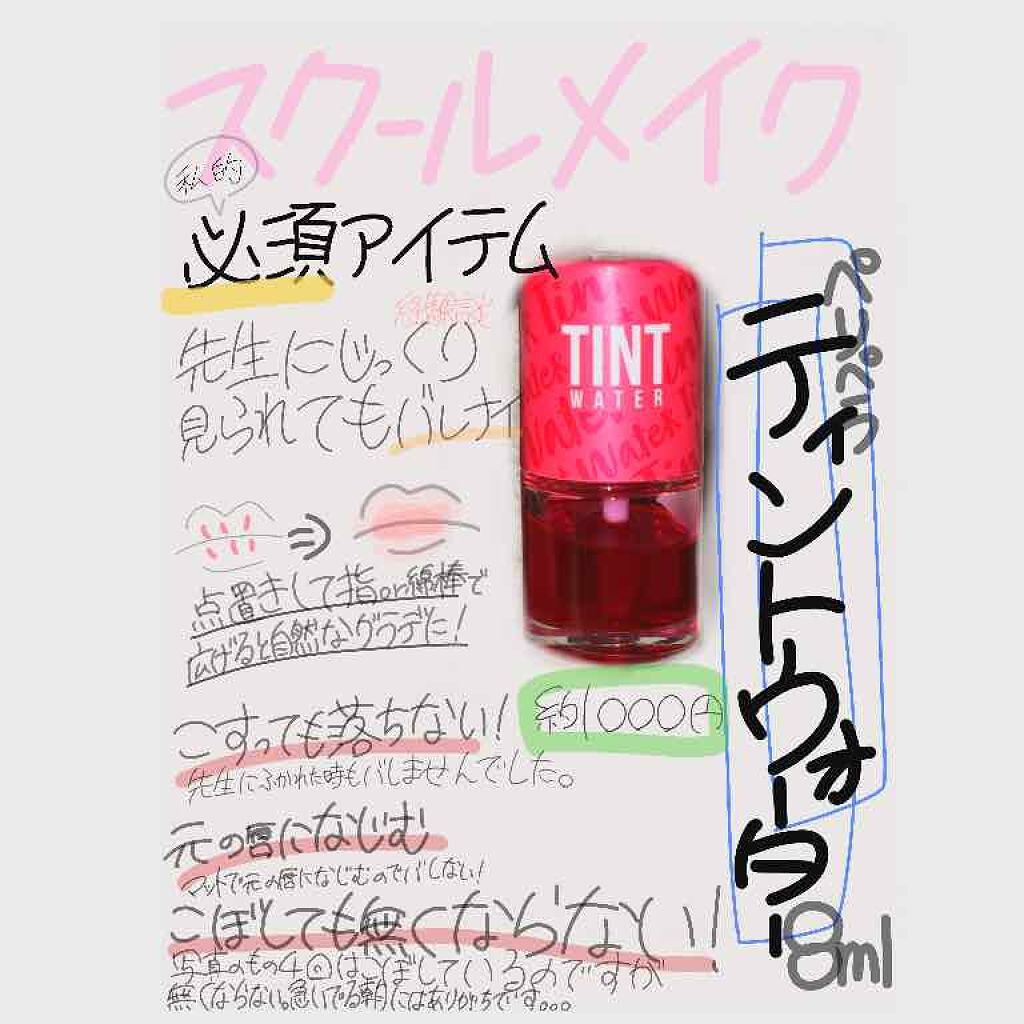 スクールメイク
私的
必須アイテム
経験談
先生にじっくり
見られてもバレナイ
TINT
WATER
ペリペラ
ティントウォーター
8ml
点置きして指or綿棒で
広げると自然なグラデに!
約1000円
こすっても落ちない!
先生にふかれた時もバレませんでした。
元の唇になじむ
マットで元の唇になじむのでバレない!
こぼしても無くならない!
写真のもの4回はこぼしているのですが
無くならない。急いでる朝にはありがちです。。。